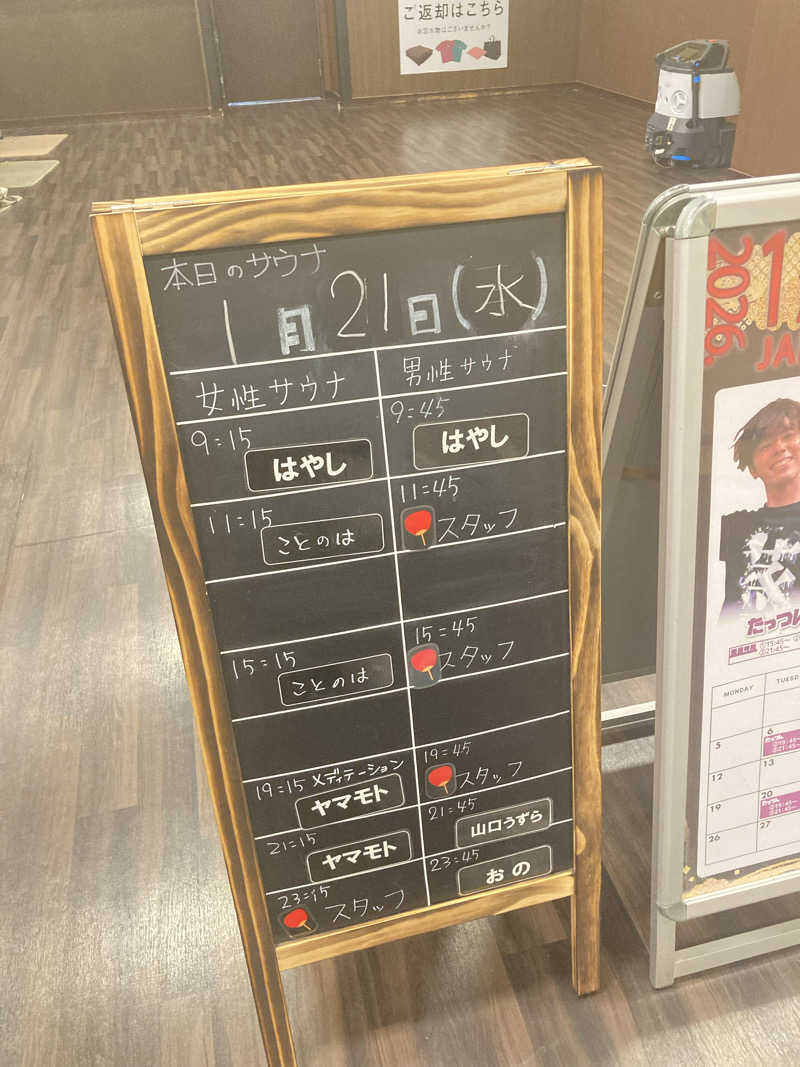 ご返却はこちら
お忘れ物はございませんか?
本日のサウナ
1月21日(水)
女性サウナ
9:15
はやし
11:15
ことのは
15:15
ことのは
19:15 メディテーション
ヤマモト
21:15
ヤマモト
23:15
スタッフ
男性サウナ
9:45
はやし
11:45
スタッフ
15:45
スタッフ
19:45
スタッフ
21:45
山口うずら
23:45
おの
2026.
1
JA
たっつ
①15:45〜
②21:45〜
MONDAY TUESD
5 6
12 13
19 20
26 27